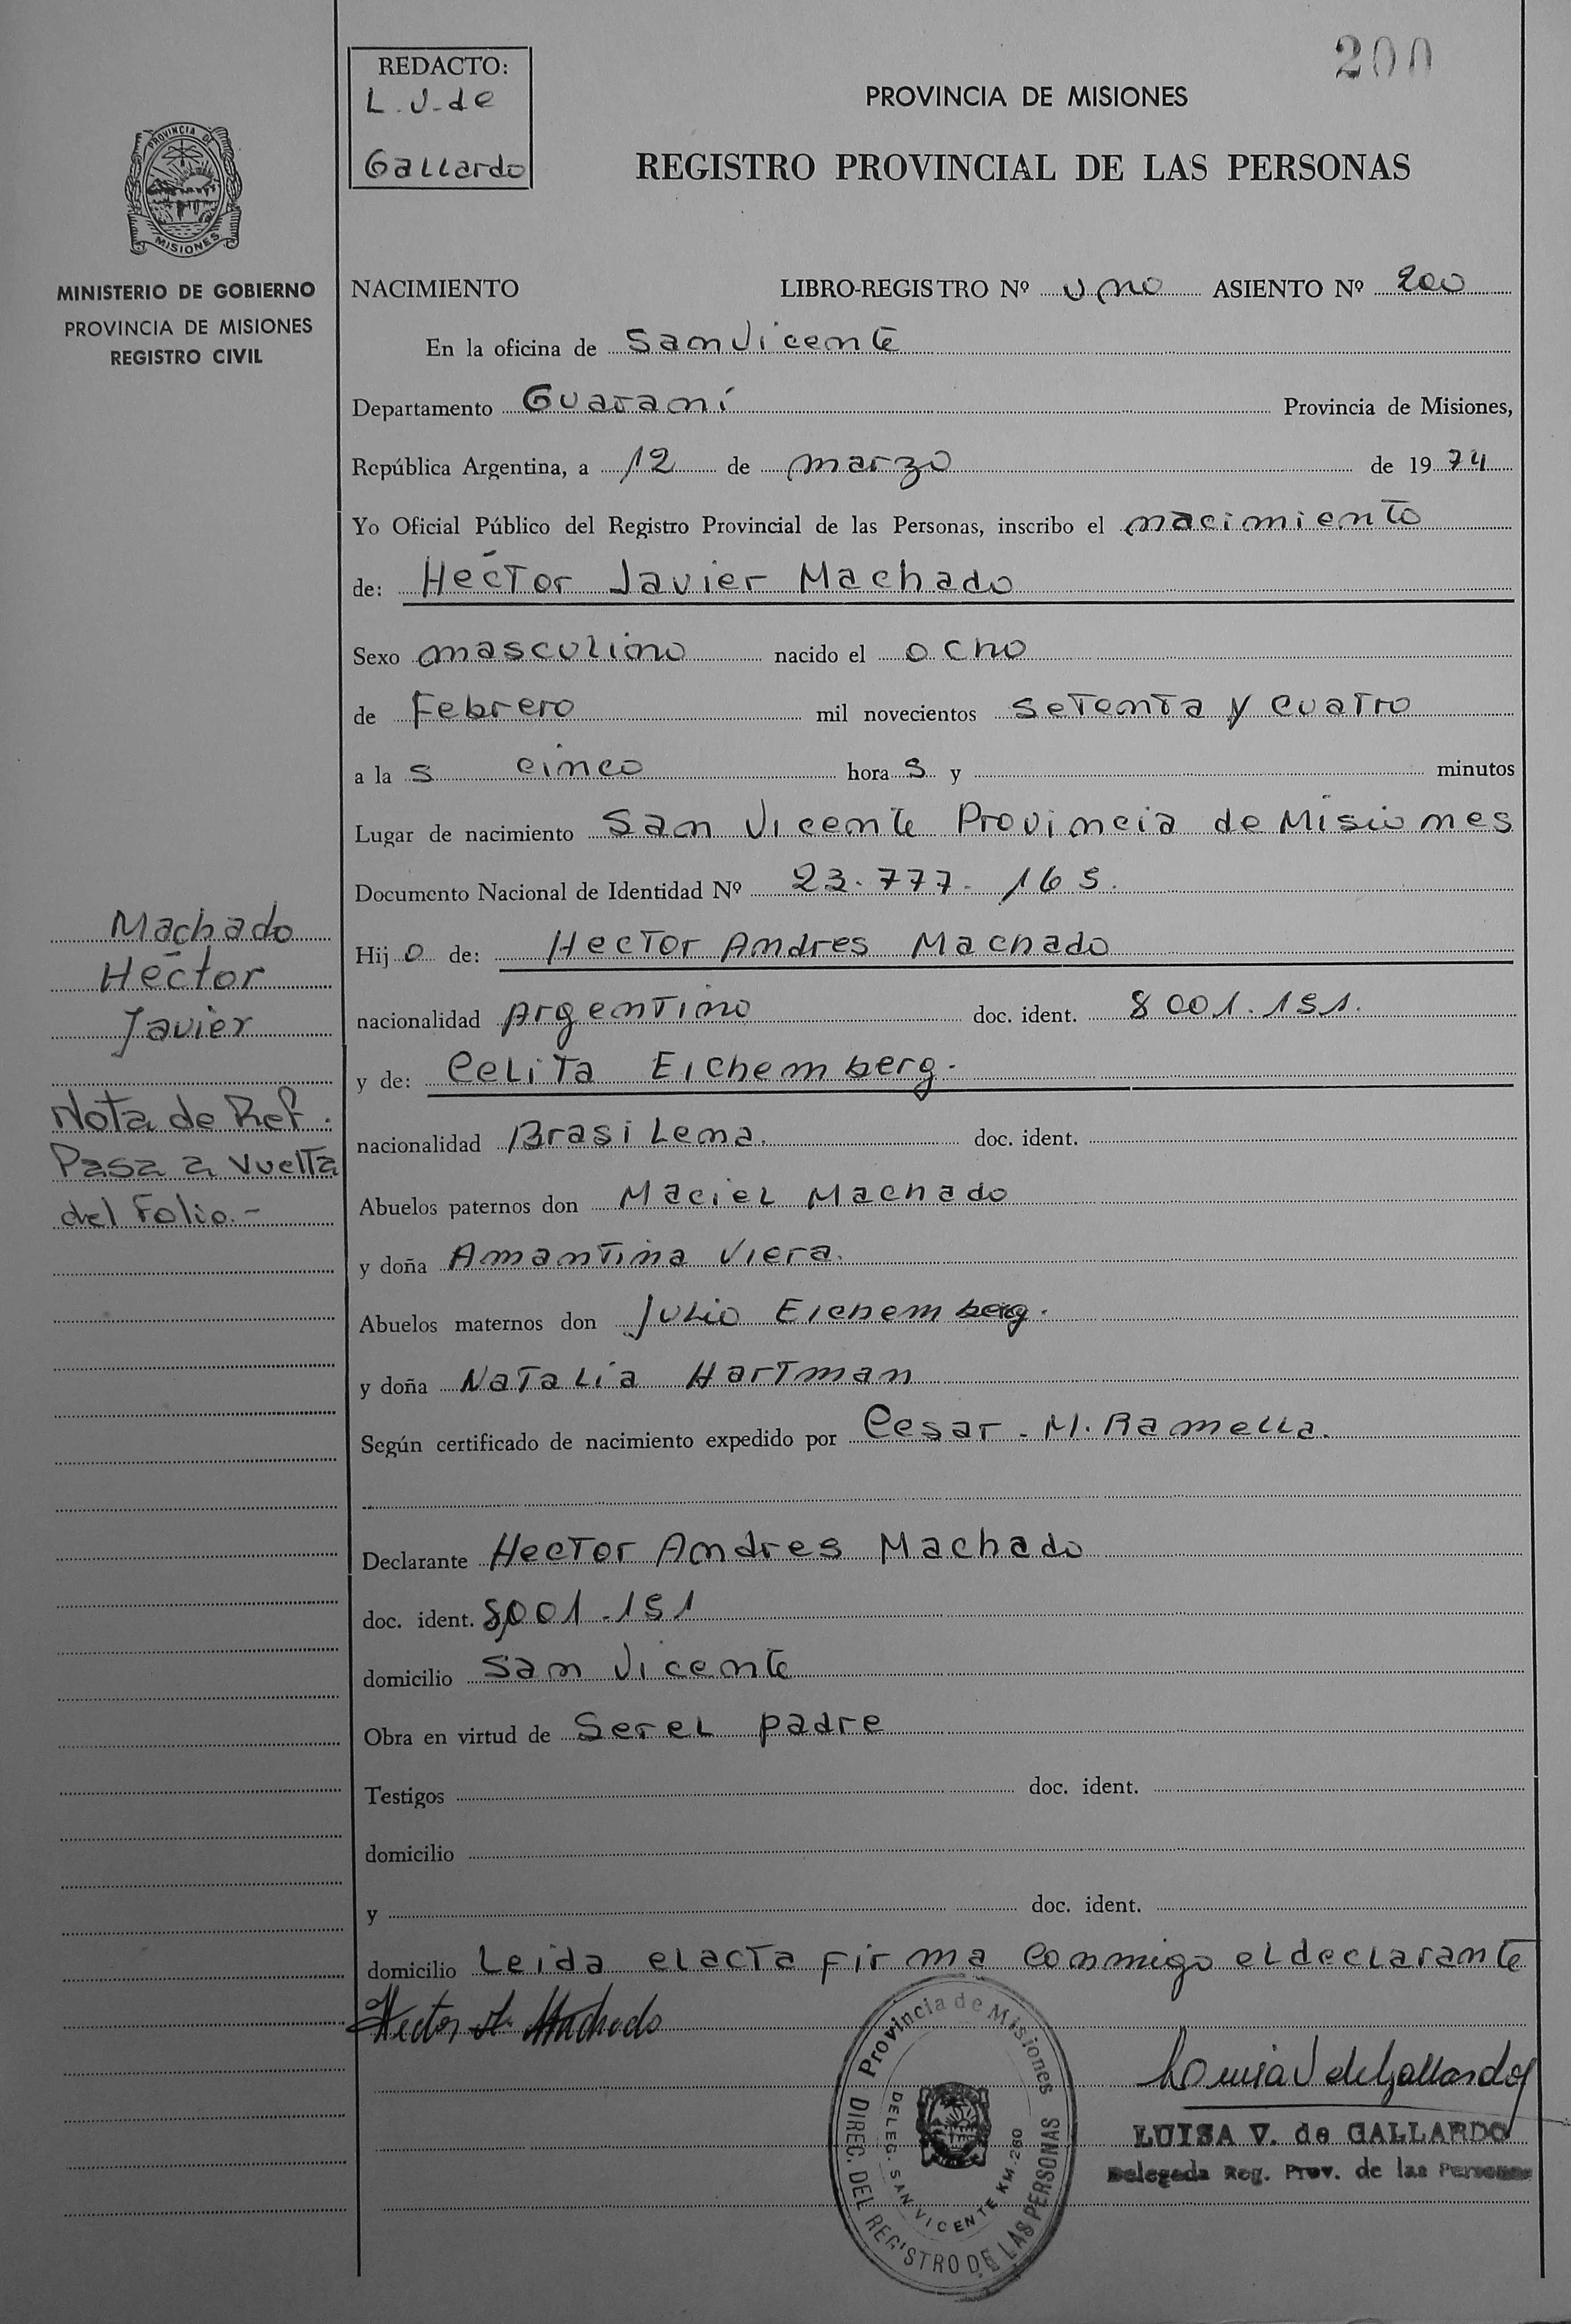 200
REDACTO:
L. V. de
Gallardo
PROVINCIA DE MISIONES
REGISTRO PROVINCIAL DE LAS PERSONAS
PROVINCIA DE
MISIONES
MINISTERIO DE GOBIERNO
PROVINCIA DE MISIONES
REGISTRO CIVIL
NACIMIENTO LIBRO-REGISTRO Nº uno ASIENTO Nº 200
En la oficina de San Vicente
Departamento Guaraní Provincia de Misiones,
República Argentina, a 12 de marzo de 1974
Yo Oficial Público del Registro Provincial de las Personas, inscribo el nacimiento
de: Héctor Javier Machado
Sexo masculino nacido el ocho
de Febrero mil novecientos setenta y cuatro
a las cinco horas y minutos
Lugar de nacimiento San Vicente Provincia de Misiones
Documento Nacional de Identidad Nº 23.777.165.
Hijo de: Hector Andres Machado
nacionalidad argentino doc. ident. 8001.151.
y de: Celita Eichemberg.
nacionalidad Brasilena. doc. ident.
Abuelos paternos don Maciel Machado
y doña Amantina Viera.
Abuelos maternos don Julio Eichemberg.
y doña Natalia Hartman
Según certificado de nacimiento expedido por Cesar. M. Ramella.
Declarante Hector Andres Machado
doc. ident. 8001.151
domicilio San Vicente
Obra en virtud de Ser el padre
Testigos doc. ident.
domicilio
y doc. ident.
domicilio Leida el acta firma conmigo el declarante
Machado
Héctor
Javier
Nota de Ref.
Pasa a vuelta
del Folio.-
Hector A. Machado
Provincia de Misiones
DIREC. DEL REGISTRO DE LAS PERSONAS
DELEG. SAN VICENTE KM. 260
Luisa V de Gallardo
LUISA V. de GALLARDO
Delegada Reg. Prov. de las Personas